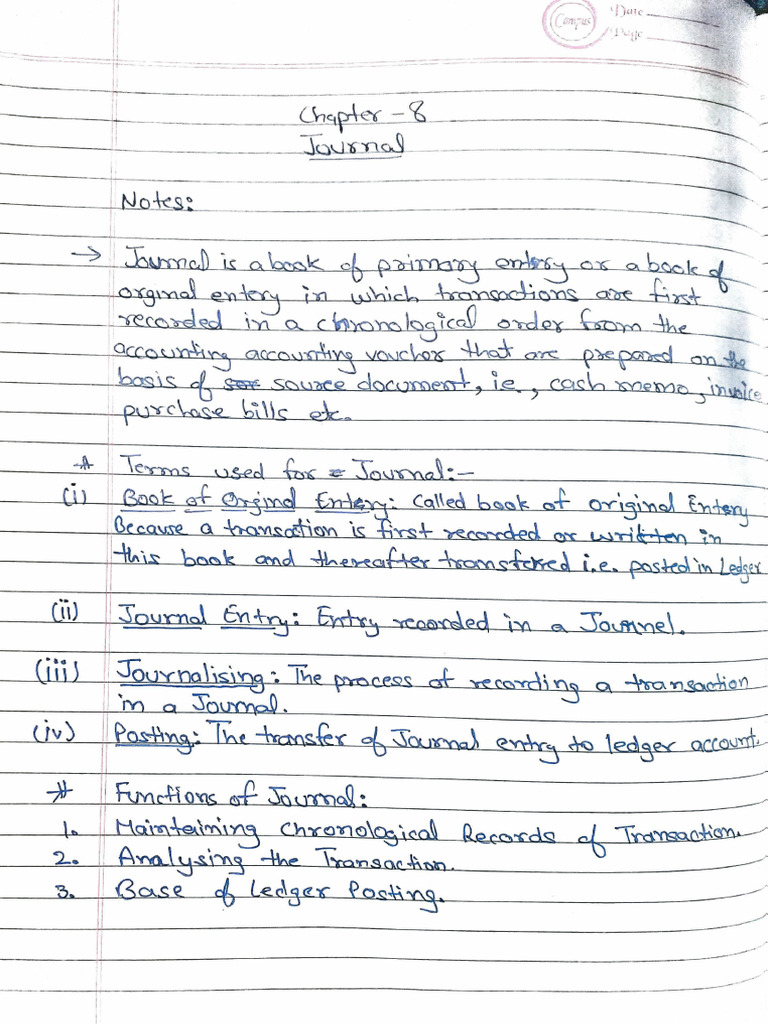 Campus
Date
Page
Chapter - 8
Journal
Notes:
→ Journal is a book of primary entery or a book of
orginal entery in which transactions are first
recorded in a chronological order from the
accounting accounting vouchor that are prepared on the
basis of source document, ie, cash memo, invoice
purchase bills etc.
* Terms used for Journal:-
(i) Book of Orginal Entery: Called book of original Entery
Because a transaction is first recorded or written in
this book and thereafter transferred i.e. posted in Ledger
(ii) Journal Entry: Entry recorded in a Journel.
(iii) Journalising: The process of recording a transaction
in a Journal.
(iv) Posting: The transfer of Journal entry to ledger account.
* Functions of Journal:
1. Maintaining Chronological Records of Transaction.
2. Analysing the Transaction.
3. Base of Ledger Posting.